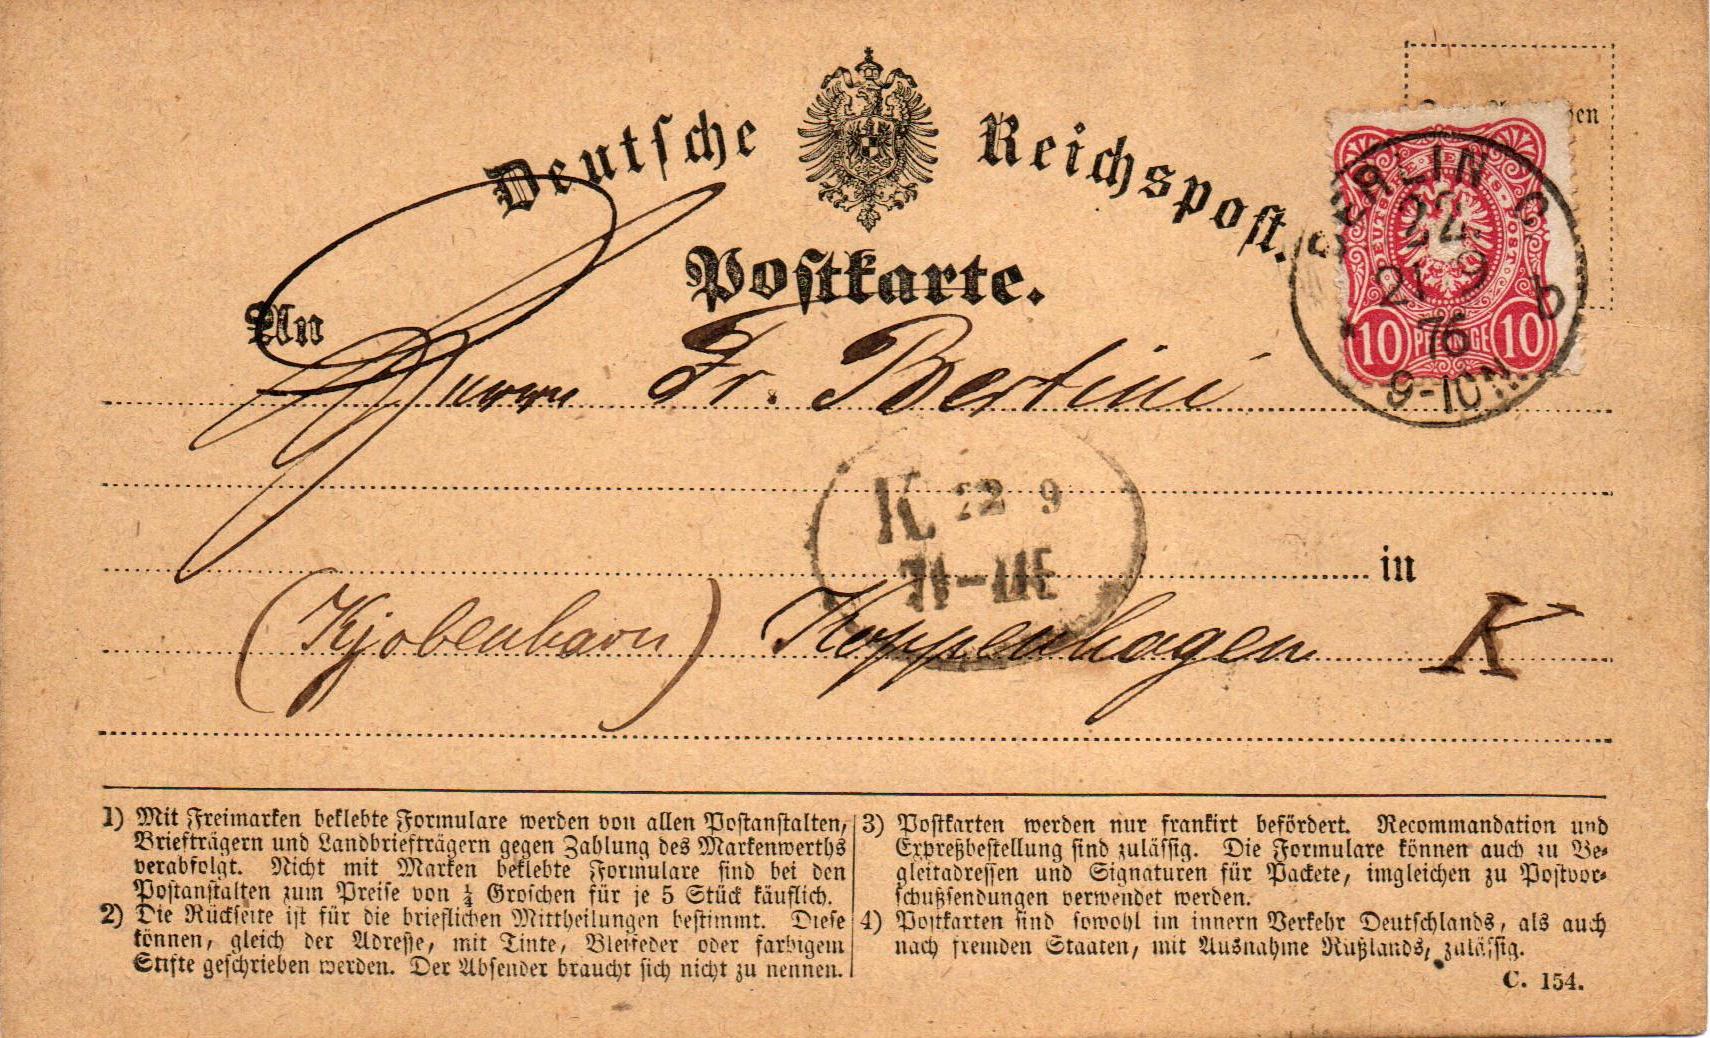 Deutsche Reichspost.
Postkarte.
An
Herrn Fr. Bertini
in
(Kjobenhavn) Koppenhagen K
BERLIN C
22.
21 9
76
9-10N.
b
DEUTSCHE REICHS-POST
10 PFENNIGE 10
K 22 9
1) Mit Freimarken beklebte Formulare werden von allen Postanstalten,
Briefträgern und Landbriefträgern gegen Zahlung des Markenwerths
verabfolgt. Nicht mit Marken beklebte Formulare sind bei den
Postanstalten zum Preise von ½ Groschen für je 5 Stück käuflich.
2) Die Rückseite ist für die brieflichen Mittheilungen bestimmt. Diese
können, gleich der Adresse, mit Tinte, Bleifeder oder farbigem
Stifte geschrieben werden. Der Absender braucht sich nicht zu nennen.
3) Postkarten werden nur frankirt befördert. Recommandation und
Expreßbestellung sind zulässig. Die Formulare können auch zu Be-
gleitadressen und Signaturen für Packete, imgleichen zu Postvor-
schußsendungen verwendet werden.
4) Postkarten sind sowohl im innern Verkehr Deutschlands, als auch
nach fremden Staaten, mit Ausnahme Rußlands, zulässig.
C. 154.